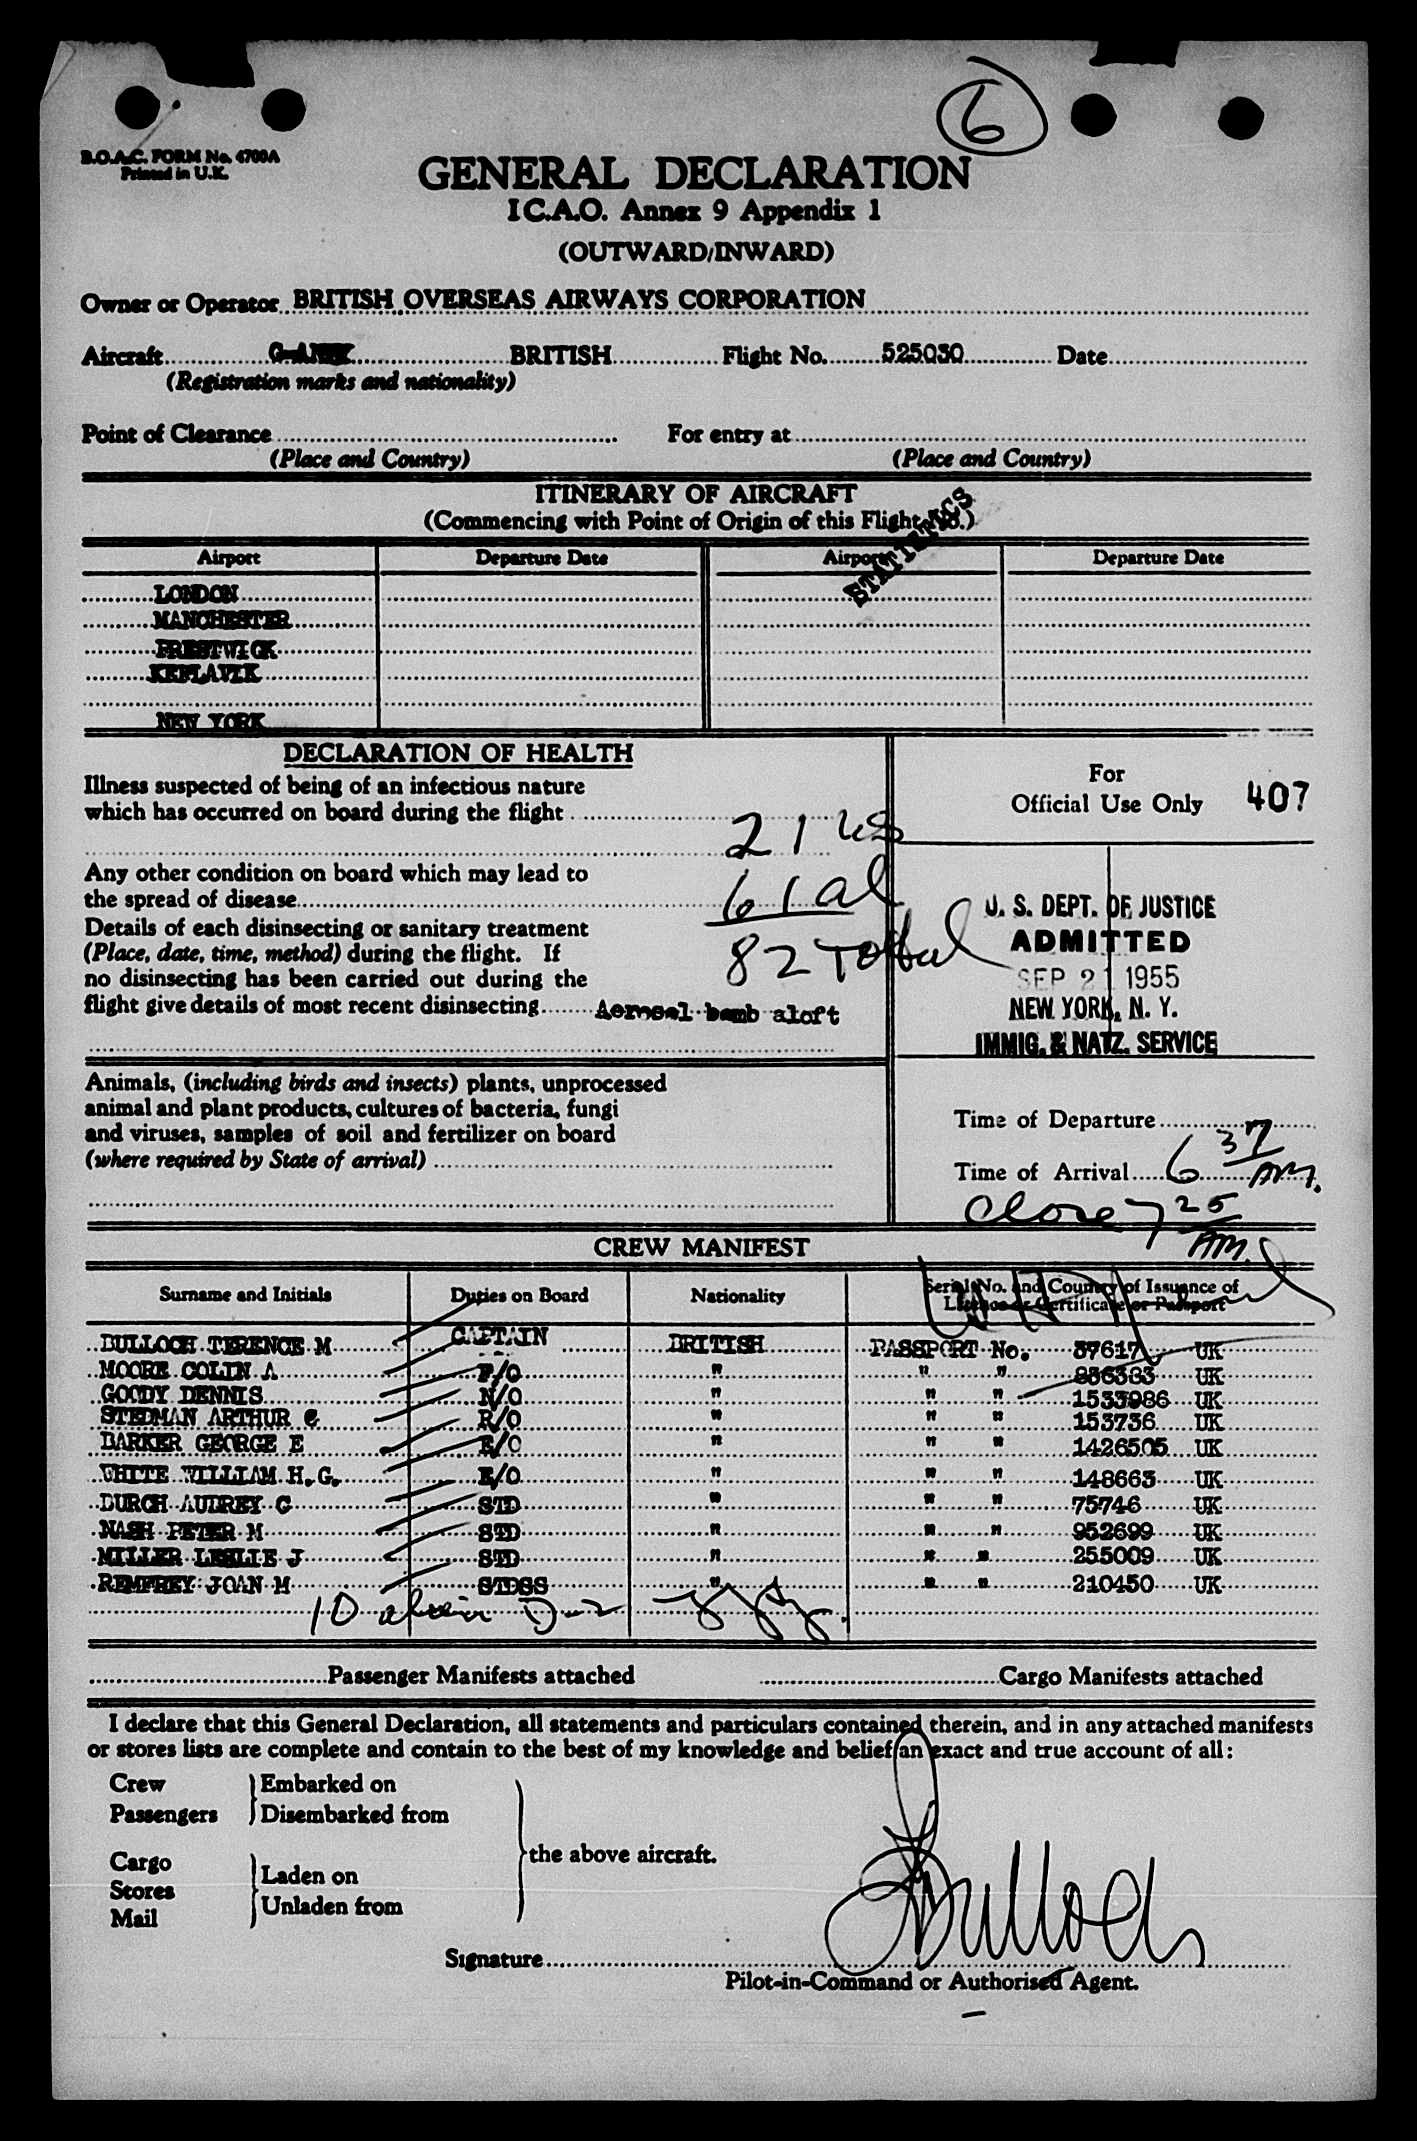 6
B.O.A.C. FORM No. 4700A
Printed in U.K.
GENERAL DECLARATION
I C.A.O. Annex 9 Appendix 1
(OUTWARD/INWARD)
Owner or Operator BRITISH OVERSEAS AIRWAYS CORPORATION
Aircraft BRITISH Flight No. 525030 Date
(Registration marks and nationality)
Point of Clearance For entry at
(Place and Country) (Place and Country)
ITINERARY OF AIRCRAFT
(Commencing with Point of Origin of this Flight No.)
STATISTICS
Airport Departure Date Airport Departure Date
LONDON
MANCHESTER
PRESTWICK
KEFLAVIK
NEW YORK
DECLARATION OF HEALTH
Illness suspected of being of an infectious nature
which has occurred on board during the flight
21 us
For
Official Use Only 407
Any other condition on board which may lead to
the spread of disease
61 al
Details of each disinsecting or sanitary treatment
(Place, date, time, method) during the flight. If
no disinsecting has been carried out during the
flight give details of most recent disinsecting Aerosol bomb aloft
82 Total
U. S. DEPT. OF JUSTICE
ADMITTED
SEP 21 1955
NEW YORK, N. Y.
IMMIG. & NATZ. SERVICE
Animals, (including birds and insects) plants, unprocessed
animal and plant products, cultures of bacteria, fungi
and viruses, samples of soil and fertilizer on board
(where required by State of arrival)
Time of Departure
Time of Arrival 6 37 AM.
Close 7 25 AM.
CREW MANIFEST
Surname and Initials Duties on Board Nationality Serial No. and Country of Issuance of
Licence or Certificate or Passport
BULLOCH TERENCE M CAPTAIN BRITISH PASSPORT No. 37617 UK
MOORE COLIN A F/O " " " 836383 UK
GOODY DENNIS N/O " " " 1533986 UK
STEDMAN ARTHUR C R/O " " " 153736 UK
BARKER GEORGE E E/O " " " 1426505 UK
WHITE WILLIAM H.G. E/O " " " 148663 UK
BURCH AUDREY C STD " " " 75746 UK
NASH PETER M STD " " " 952699 UK
MILLER LESLIE J STD " " " 255009 UK
REMFREY JOAN M STDSS " " " 210450 UK
10 alien D-2
Passenger Manifests attached Cargo Manifests attached
I declare that this General Declaration, all statements and particulars contained therein, and in any attached manifests
or stores lists are complete and contain to the best of my knowledge and belief an exact and true account of all:
Crew Embarked on
Passengers Disembarked from
the above aircraft.
Cargo
Stores Laden on
Mail Unladen from
Signature Bulloch
Pilot-in-Command or Authorised Agent.